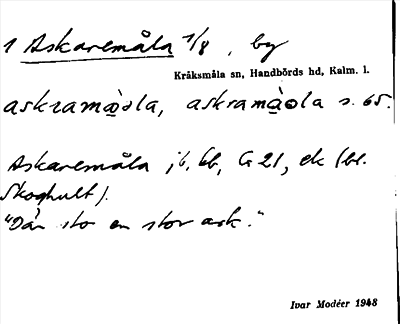 1 Askaremåla 1/8, by
Kråksmåla sn, Handbörds hd, Kalm. l.
askramåola, askramåola s. 65.
Askaremåla jb, Gb, G 21, ek (bl.
Skoghult).
"Där står en stor ask."
Ivar Modéer 1948